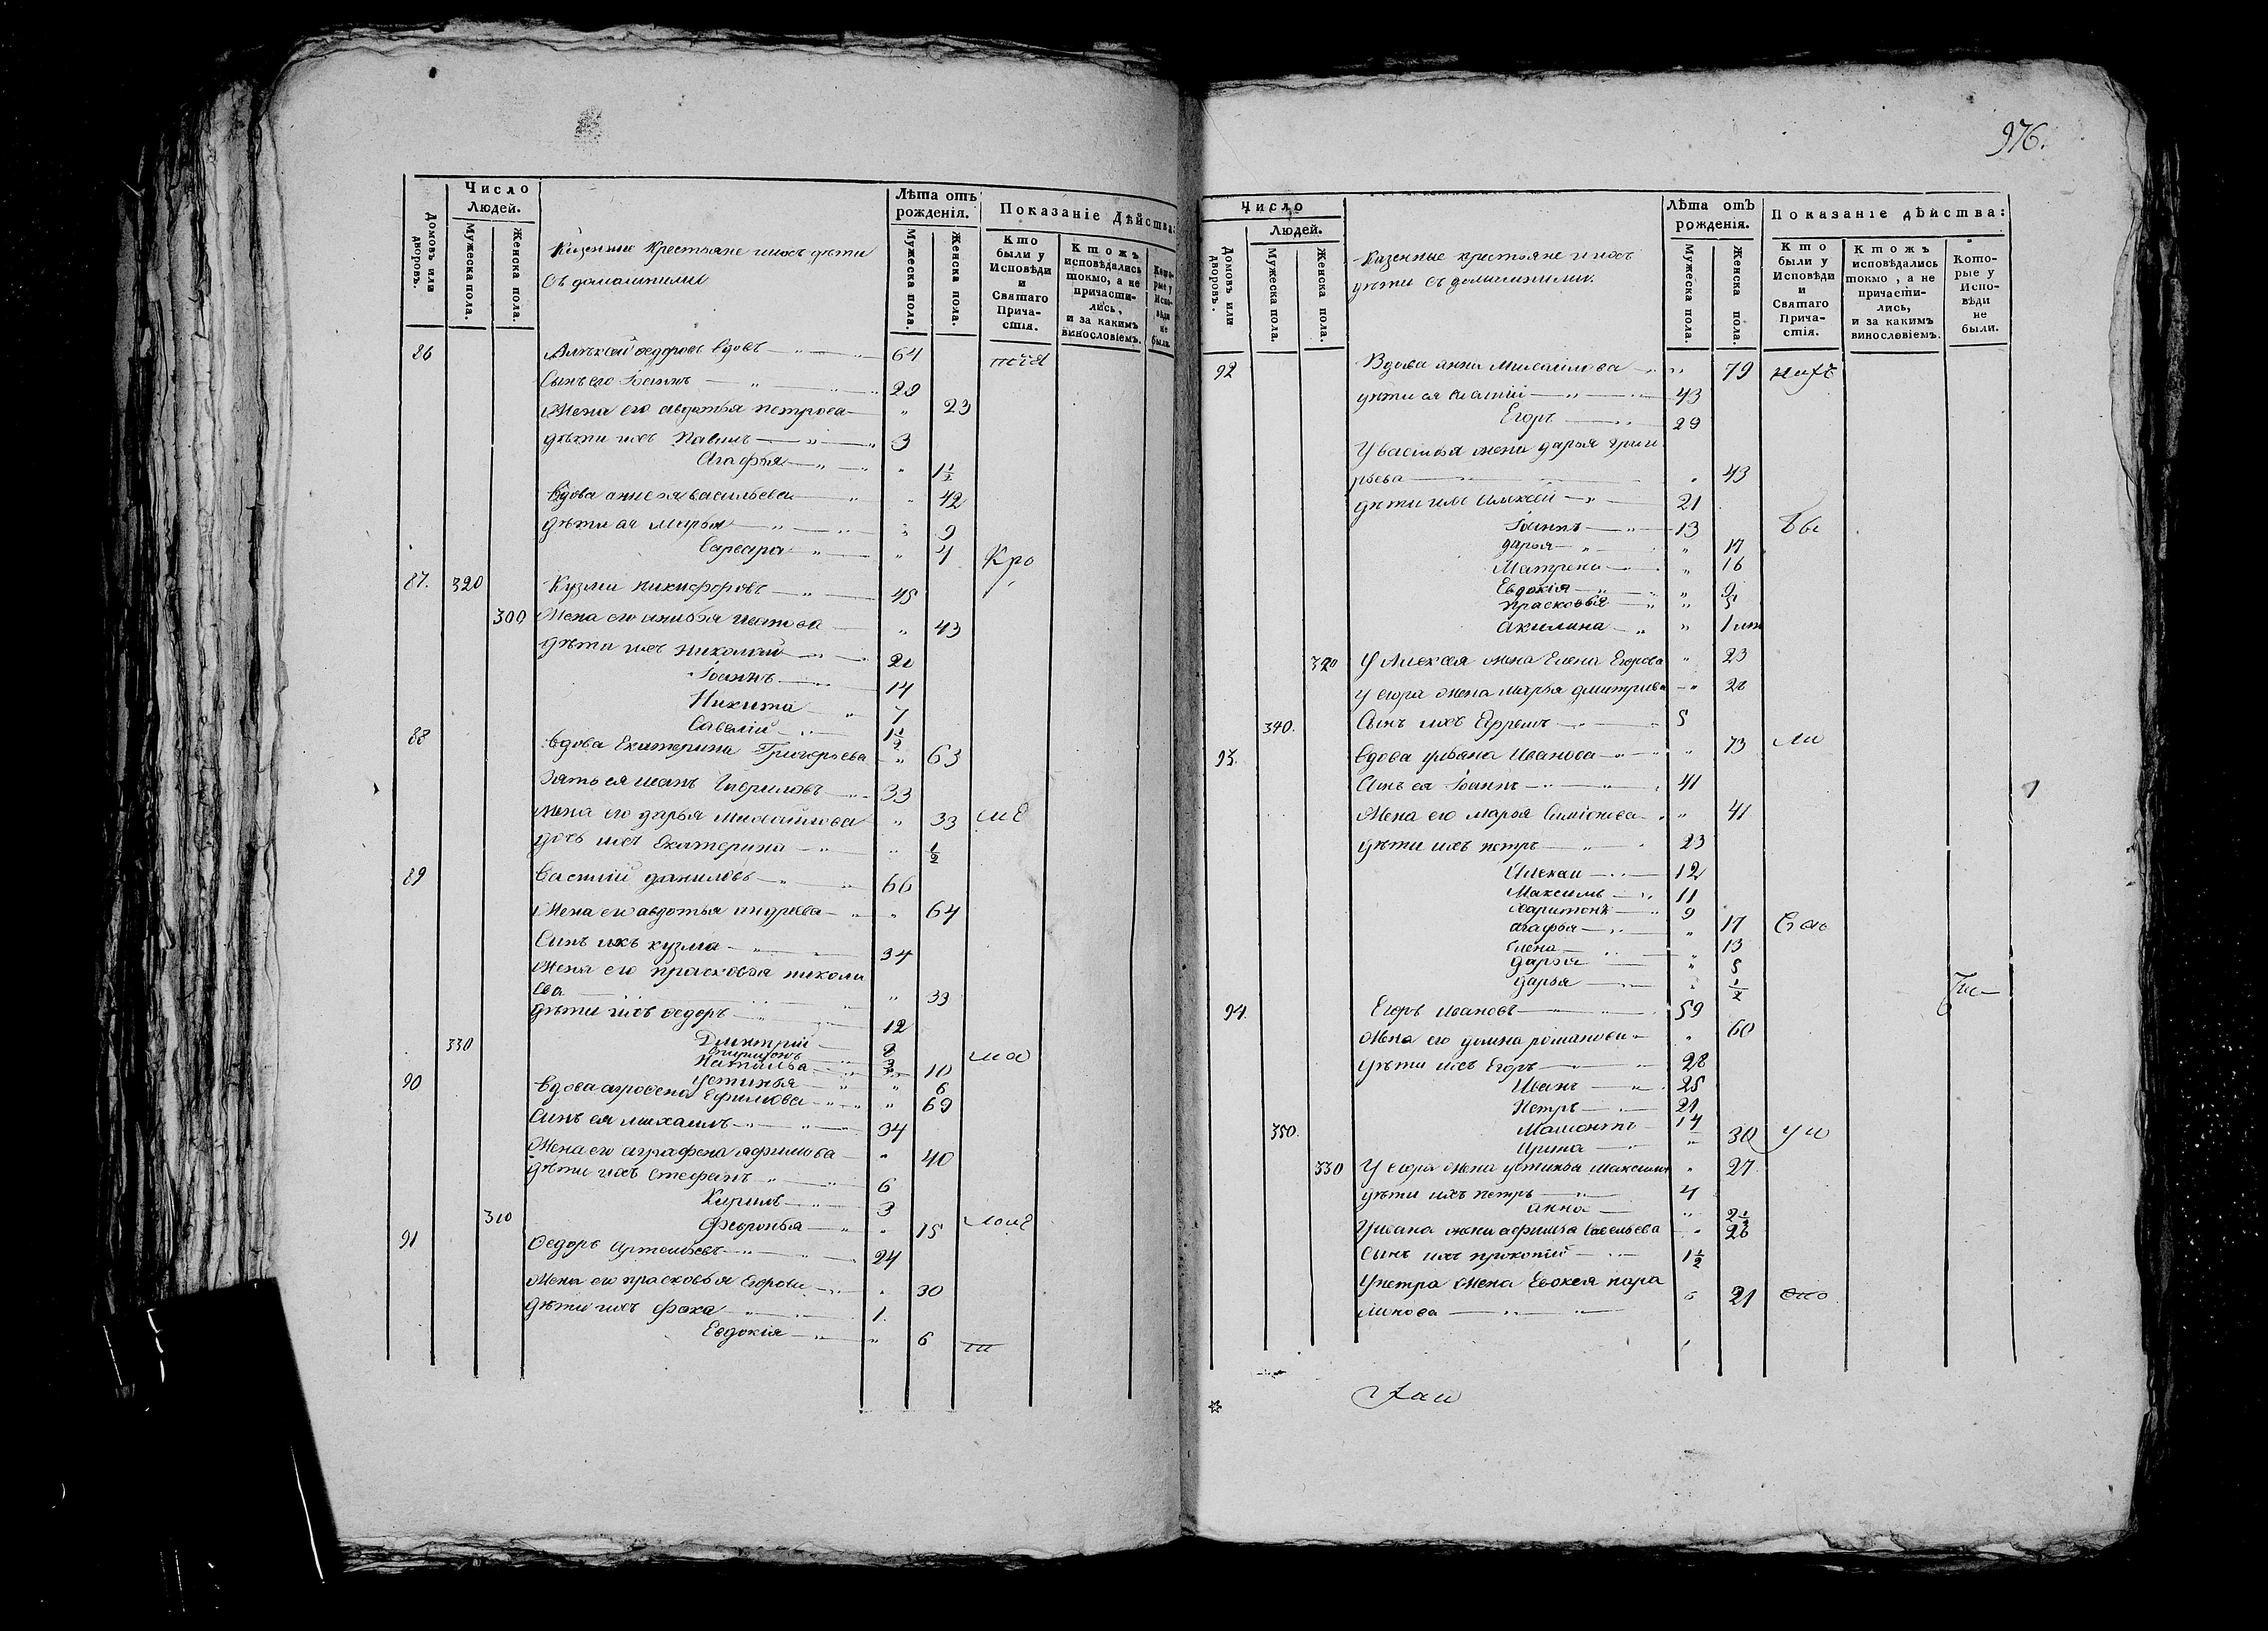 Число Людей.
Домовъ или дворовъ.
Мужеска пола.
Женска пола.
Казенные Крестьяне и ихъ дѣти
Съ домашними
Лѣта отъ рожденія.
Мужеска пола.
Женска пола.
Показаніе Дѣйства:
Кто были у Исповѣди и Святаго Причастія.
Ктожъ исповѣдались токмо, а не причастились, и за какимъ винословіемъ.
Которые у Исповѣди не были.
86 Алѣксей Федоровъ вдовъ 64
Сынъ его Іоаннъ 29
Жена его авдотья петрова " 23
дѣти ихъ Павилъ 3
Агафья " 1½
Вдова анисья васильева " 42
дѣти ея Марья " 9
Варвара " 4 Кро
87. 320 Кузма никифоровъ 45
300 Жена его Иванова " 43
дѣти ихъ николай 20
Іоаннъ 14
Никита 7
Савелій 1½
88 вдова Екатерина Григорьева " 63
Зять ея иванъ Гавриловъ 33
жена его дарья михайлова " 33
дочь ихъ Екатерина " ½
89 Василій даниловъ 66
Жена его авдотья андреева " 64
Синъ ихъ кузма 34
Жена его прасковья никола
ева " 33
дѣти ихъ федоръ 12
330 Дмитрій 8
Спиридонъ 3
Наталья 10
Устинья " 6
90 Вдова агрофена Ефимова " 69
Синъ ея михаилъ 34
Жена его аграфена " 40
дѣти ихъ Стефанъ 6
Кирилъ 3
310 Февронья " 15
91 Федоръ Артемьевъ 24
Жена его прасковья Егорова " 30
дѣти ихъ фока 1.
Евдокія " 6
976.
Число Людей.
Домовъ или дворовъ.
Мужеска пола.
Женска пола.
Казенные крестьяне и ихъ
дѣти съ домашними.
Лѣта отъ рожденія.
Мужеска пола.
Женска пола.
Показаніе дѣйства:
Кто были у Исповѣди и Святаго Причастія.
Ктожъ исповѣдались токмо, а не причастились, и за какимъ винословіемъ.
Которые у Исповѣди не были.
92 Вдова анна Михайлова " 79
дѣти ея василій 43
Егоръ 29
У василья жена дарья григо
рьева " 43
дѣти ихъ алексей 21
Іоаннъ 13 бы
дарья " 17
Матрена " 16
Евдокія " 9
прасковья " 5
акилина " 1
320 У Алексея жена Елена Егорова " 23
у егора жена марья дмитрива " 28
340. Сынъ ихъ Ефремъ 5
93. вдова ульяна Иванова " 73 ли
Синъ ея Іоаннъ 41
Жена его марья Симіонова " 41
дѣти ихъ петръ 23
Алексей 12
Максимъ 11
Харитонъ 9
агафья " 17
Елена 13
дарья " 5
дарья ½
94. Егоръ Ивановъ 59
Жена его домна романова " 60
дѣти ихъ Егоръ 28
Иванъ 25
Петръ 21
350. Мамонтъ 14
Ирина " 30
330 У егора жена устинья максим " 27
дѣти ихъ петръ 4
анна " 2½
У ивана жена афимья Савельева " 26
Сынъ ихъ прокопій 1½
У петра жена 21